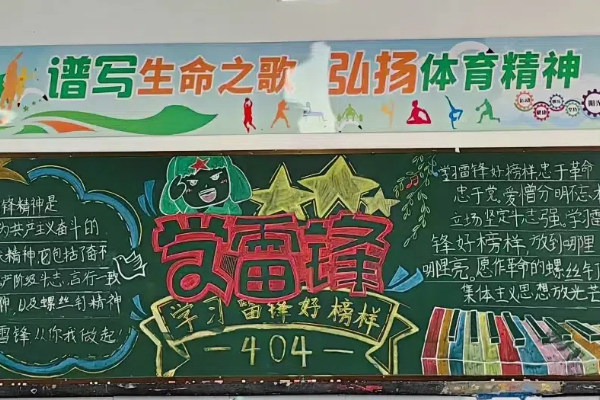 谱写生命之歌 弘扬体育精神
锋精神是
共产主义奋斗的
精神它包括了奋不
产阶级斗志,言行一致
神,以及螺丝钉精神
雷锋!!从你我做起!
学雷锋
学习雷锋好榜样
404
学习雷锋好榜样忠于革命
忠于党,爱憎分明
立场坚定斗志强,学雷
锋好榜样,放到哪里
哪里亮。愿作革命的螺丝钉
集体主义思想放光芒